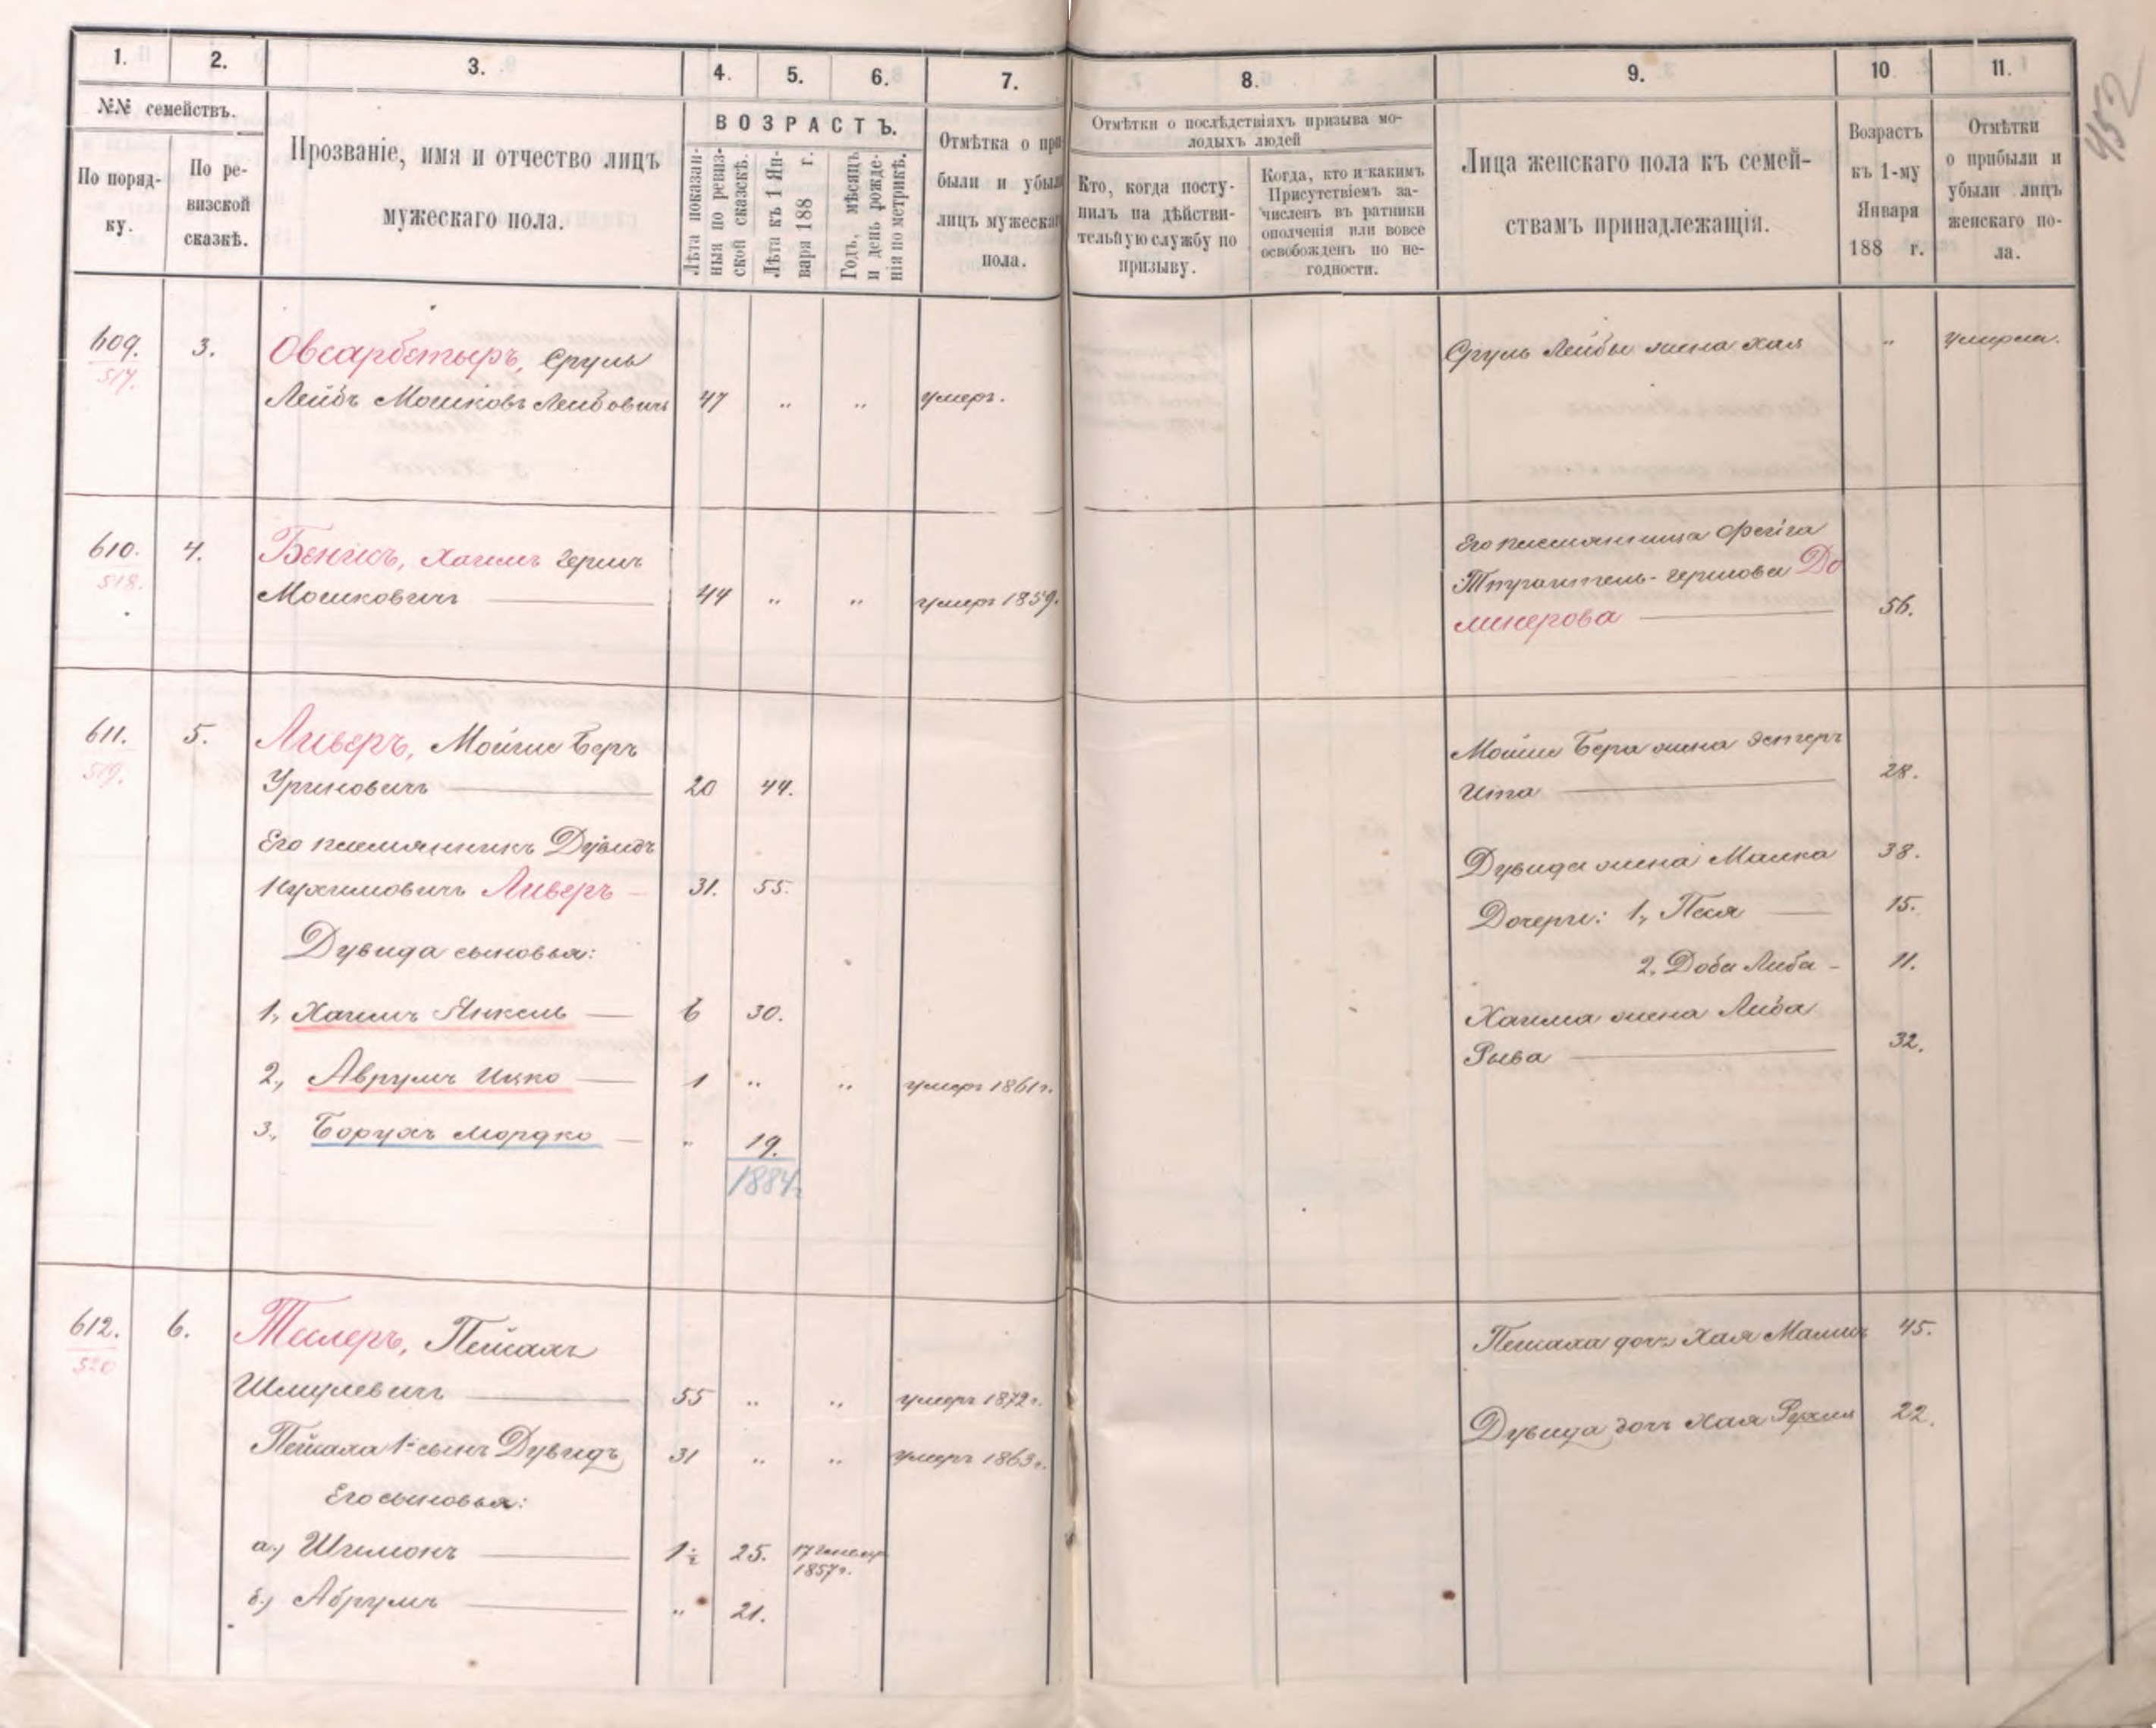 452
1. 2. 3. 4. 5. 6. 7. 8. 9. 10 11.
№№ семействъ.
По поряд-
ку.
По ре-
визской
сказкѣ.
Прозваніе, имя и отчество лицъ
мужескаго пола.
ВОЗРАСТЪ.
Лѣта показан-
ныя по ревиз-
ской сказкѣ.
Лѣта къ 1 Ян-
варя 188 г.
Годъ, мѣсяцъ
и день рожде-
нія по метрикѣ.
Отмѣтка о при
были и убыли
лицъ мужескаг
пола.
Отмѣтки о послѣдствіяхъ призыва мо-
лодыхъ людей
Кто, когда посту-
пилъ на дѣйстви-
тельную службу по
призыву.
Когда, кто и какимъ
Присутствіемъ за-
численъ въ ратники
ополченія или вовсе
освобожденъ по не-
годности.
Лица женскаго пола къ семей-
ствамъ принадлежащія.
Возрастъ
къ 1-му
Января
188 г.
Отмѣтки
о прибыли и
убыли лицъ
женскаго по-
ла.
609. 3. Овсарбетыръ, Сруль
517.
Лейбъ Мошковъ Лейбовичъ 47 " " умеръ.
Сруль Лейбы жена Хая " умерла.
610. 4. Бенисъ, Хаимъ Гершъ
518.
Мошковичъ 44 " " умеръ 1859.
Его племянница Фейга
Гершова До
линерова 56.
611. 5. Ливеръ, Мойше Беръ
519.
Уриновичъ 20 44.
Его племянникъ Дувидъ
Нухимовичъ Ливеръ 31. 55.
Дувида сыновья:
1, Хаимъ Янкель 6 30.
2, Аврумъ Ицко 1 " " умеръ 1861 г.
3, Борухъ Мордко " 19.
1884 г.
Мойше Бера жена Эстеръ
Ита 28.
Дувида жена Малка 38.
Дочери: 1, Песя 15.
2, Доба Либа 11.
Хаима жена Либа
Рыва 32.
612. 6. Тилеръ, Пейсахъ
520
Шмулевичъ 55 " " умеръ 1872 г.
Пейсаха 1й сынъ Дувидъ 31 " " умеръ 1863 г.
Его сыновья:
а) Шимонъ 1½ 25. 17 Января
1857 г.
б) Абрумъ " 21.
Пейсаха дочь Хая 45.
Дувида дочь Хая Рухля 22.